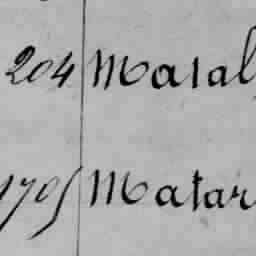 204 Masal
1705 Matar